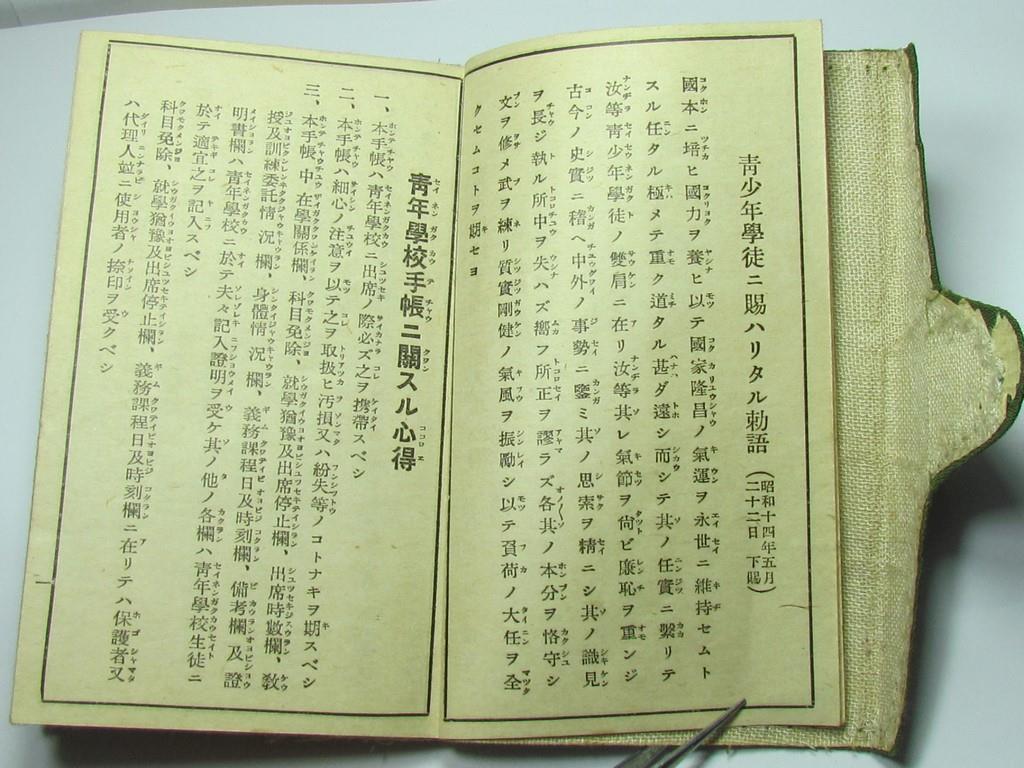 靑少年學徒ニ賜ハリタル勅語（昭和十四年五月二十二日 下賜）
國本ニ培ヒ國力ヲ養ヒ以テ國家隆昌ノ氣運ヲ永世ニ維持セムト
スル任タル極メテ重ク道タル甚ダ遠シ而シテ其ノ任實ニ繫リテ
汝等靑少年學徒ノ雙肩ニ在リ汝等其レ氣節ヲ尙ビ廉恥ヲ重ンジ
古今ノ史實ニ稽ヘ中外ノ事勢ニ鑒ミ其ノ思索ヲ精ニシ其ノ識見
ヲ長ジ執ル所中ヲ失ハズ嚮フ所正ヲ謬ラズ各其ノ本分ヲ恪守シ
文ヲ修メ武ヲ練リ質實剛健ノ氣風ヲ振勵シ以テ負荷ノ大任ヲ全
クセムコトヲ期セヨ
靑年學校手帳ニ關スル心得
一、本手帳ハ靑年學校ニ出席ノ際必ズ之ヲ携帶スベシ
二、本手帳ハ細心ノ注意ヲ以テ之ヲ取扱ヒ汚損又ハ紛失等ノコトナキヲ期スベシ
三、本手帳中在學關係欄、科目免除、就學猶豫及出席停止欄、出席時數欄、敎
授及訓練委託情況欄、身體情況欄、義務課程日及時刻欄、備考欄及證
明書欄ハ靑年學校ニ於テ夫々記入證明ヲ受ケ其ノ他ノ各欄ハ靑年學校生徒ニ
於テ適宜之ヲ記入スベシ
科目免除、就學猶豫及出席停止欄、義務課程日及時刻欄ニ在リテハ保護者又
ハ代理人竝ニ使用者ノ捺印ヲ受クベシ